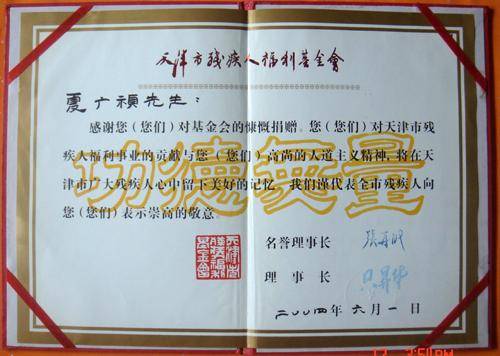 天津市残疾人福利基金會
夏广祯先生：
感谢您（您们）对基金会的慷慨捐赠。您（您们）对天津市残
疾人福利事业的贡献与您（您们）高尚的人道主义精神，将在天
津市广大残疾人心中留下美好的记忆。我们谨代表全市残疾人向
您（您们）表示崇高的敬意。
功德無量
名誉理事长
理 事 长
天津市残疾人福利基金會
二〇〇四年六月一日